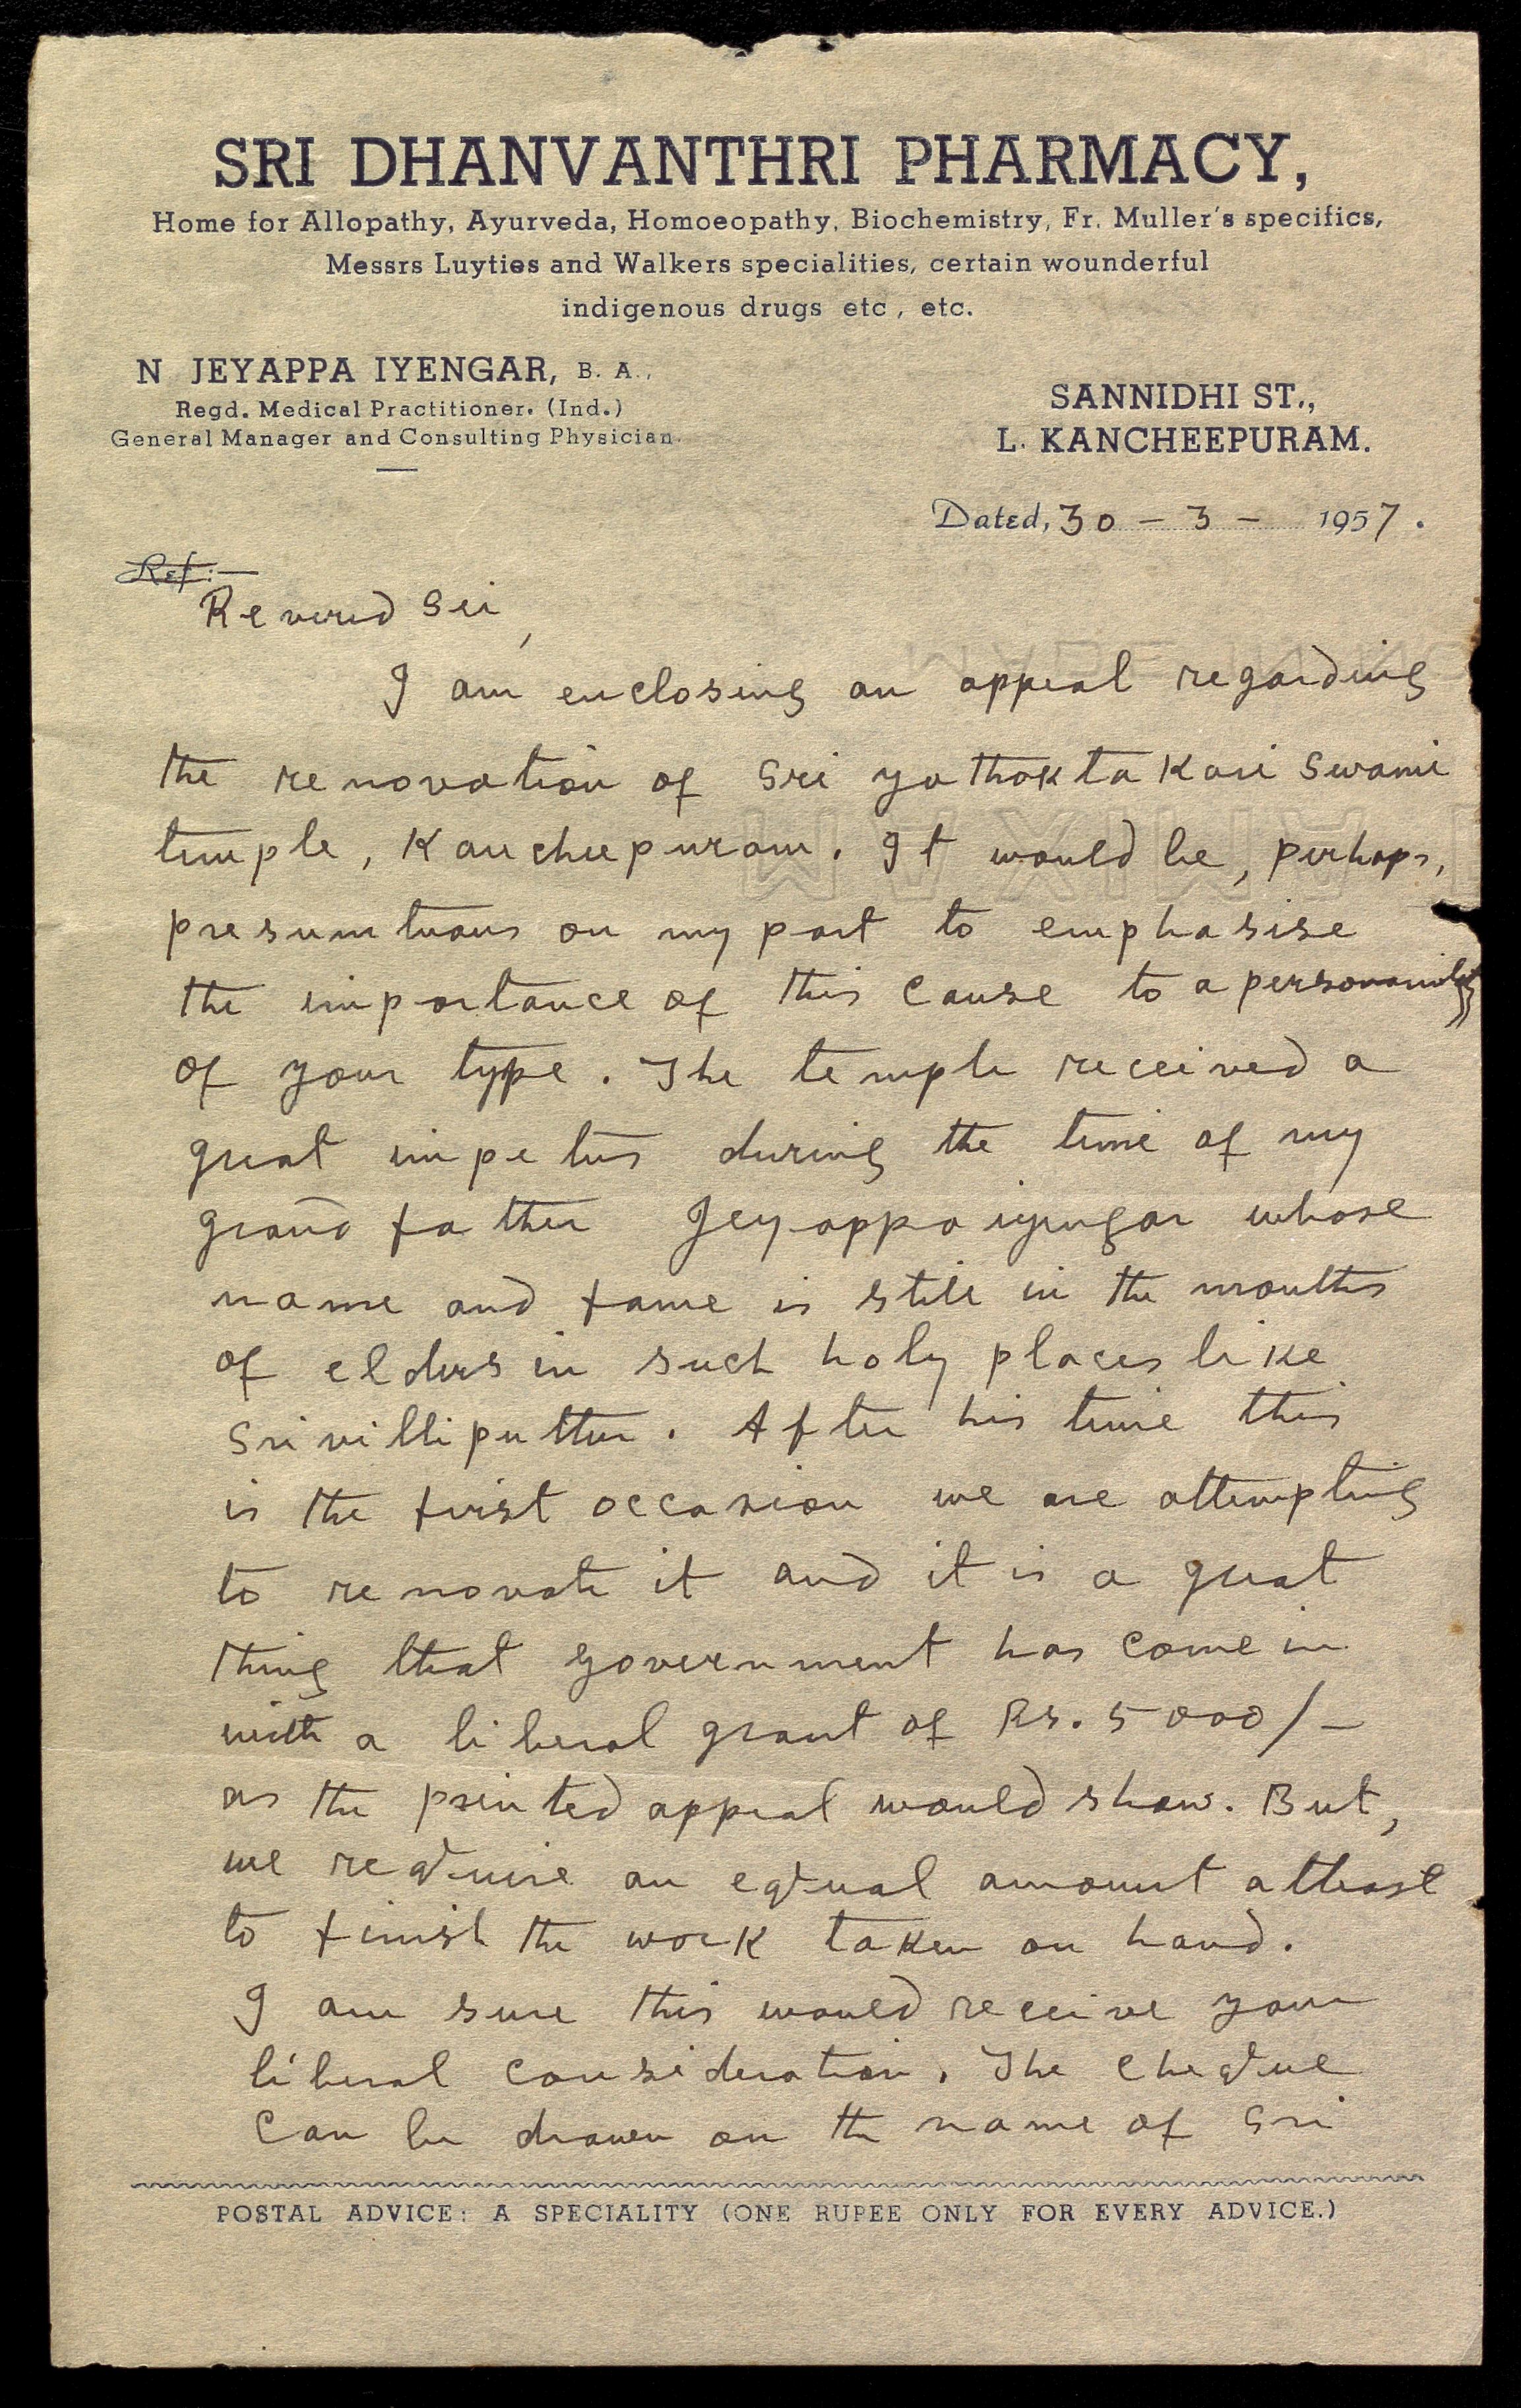 SRI DHANVANTHRI PHARMACY,
Home for Allopathy, Ayurveda, Homoeopathy, Biochemistry, Fr. Muller's specifics,
Messrs Luyties and Walkers specialities, certain wounderful
indigenous drugs etc, etc.
N JEYAPPA IYENGAR, B. A.,
Regd. Medical Practitioner. (Ind.)
General Manager and Consulting Physician.
SANNIDHI ST.,
L. KANCHEEPURAM.
Dated, 30 - 3 - 1957.
Ref:—
Revered Sir,
I am enclosing an appeal regarding
the renovation of Sri yathoktakari Swami
temple, Kancheepuram. It would be, perhaps,
presumtuous on my part to emphasise
the importance of this cause to a
of your type. The temple received a
great impetus during the time of my
grand father Jeyappa iyengar whose
name and fame is still in the mouths
of elders in such holy places like
Srivilliputtur. After his time this
is the first occasion we are attempting
to renovate it and it is a great
thing that government has come in
with a liberal grant of Rs. 5000/-
as the printed appeal would show. But,
we require an equal amount atleast
to finish the work taken on hand.
I am sure this would receive your
liberal consideration. The cheque
can be drawn on the name of Sri
POSTAL ADVICE: A SPECIALITY (ONE RUPEE ONLY FOR EVERY ADVICE.)